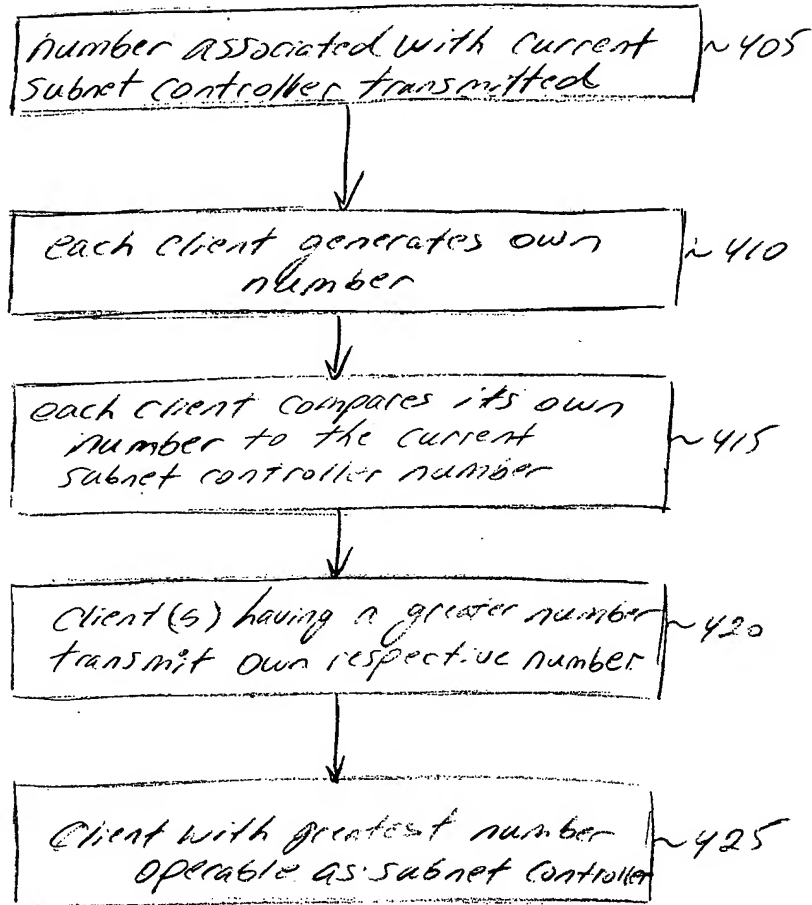 number associated with current ~405
subnet controller transmitted
each client generates own ~410
number
each client compares its own
number to the current ~415
subnet controller number
client(s) having a greater number ~420
transmit own respective number
client with greatest number ~425
operable as subnet controller